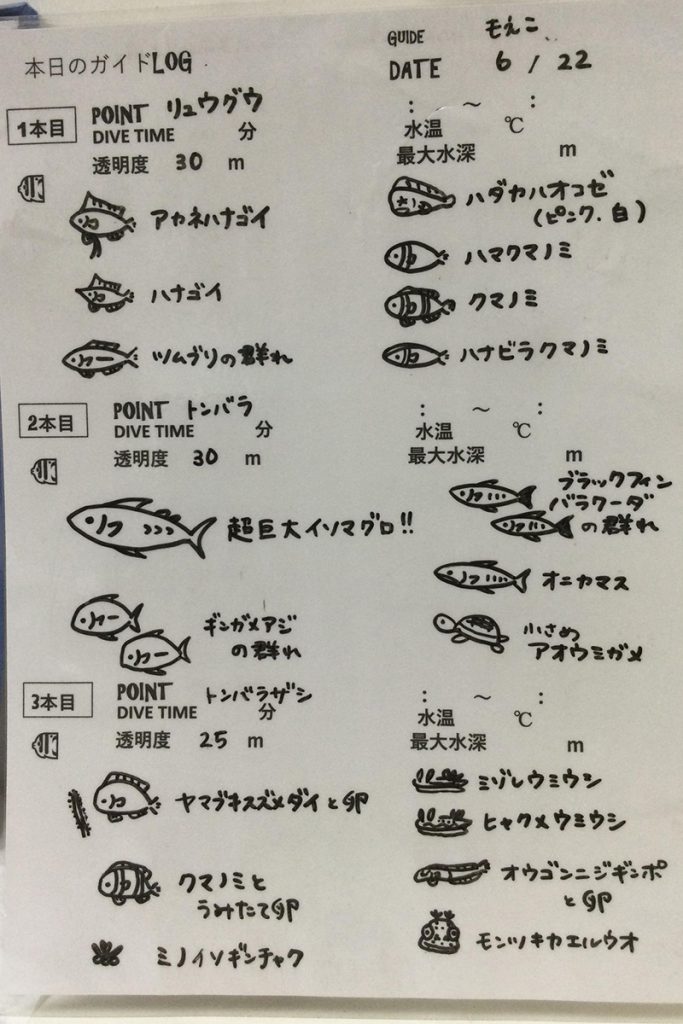 本日のガイドLOG
GUIDE もえこ
DATE 6 / 22
1本目 POINT リュウグウ
DIVE TIME 分
透明度 30 m
: ～ :
水温 ℃
最大水深 m
アカネハナゴイ
ハナゴイ
ツムブリの群れ
ハダカハオコゼ
(ピンク.白)
ハマクマノミ
クマノミ
ハナビラクマノミ
2本目 POINT トンバラ
DIVE TIME 分
透明度 30 m
: ～ :
水温 ℃
最大水深 m
超巨大イソマグロ!!
ギンガメアジ
の群れ
ブラックフィン
バラクーダ
の群れ
オニカマス
小さめ
アオウミガメ
3本目 POINT トンバラザシ
DIVE TIME 分
透明度 25 m
: ～ :
水温 ℃
最大水深 m
ヤマブキスズメダイと卵
クマノミと
うみたて卵
ミノイソギンチャク
ミゾレウミウシ
ヒャクメウミウシ
オウゴンニジギンポ
と卵
モンツキカエルウオ